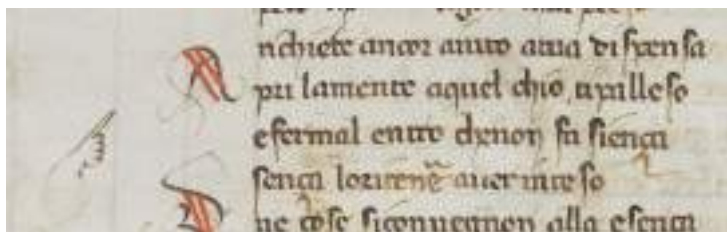 richiete ancor aiuto atua dispensa
A pri lamente aquel chio tipalleso
efermal entro chenon fa siença
sença loritenē auer inteso
D ue cose siconuegnon alla esença